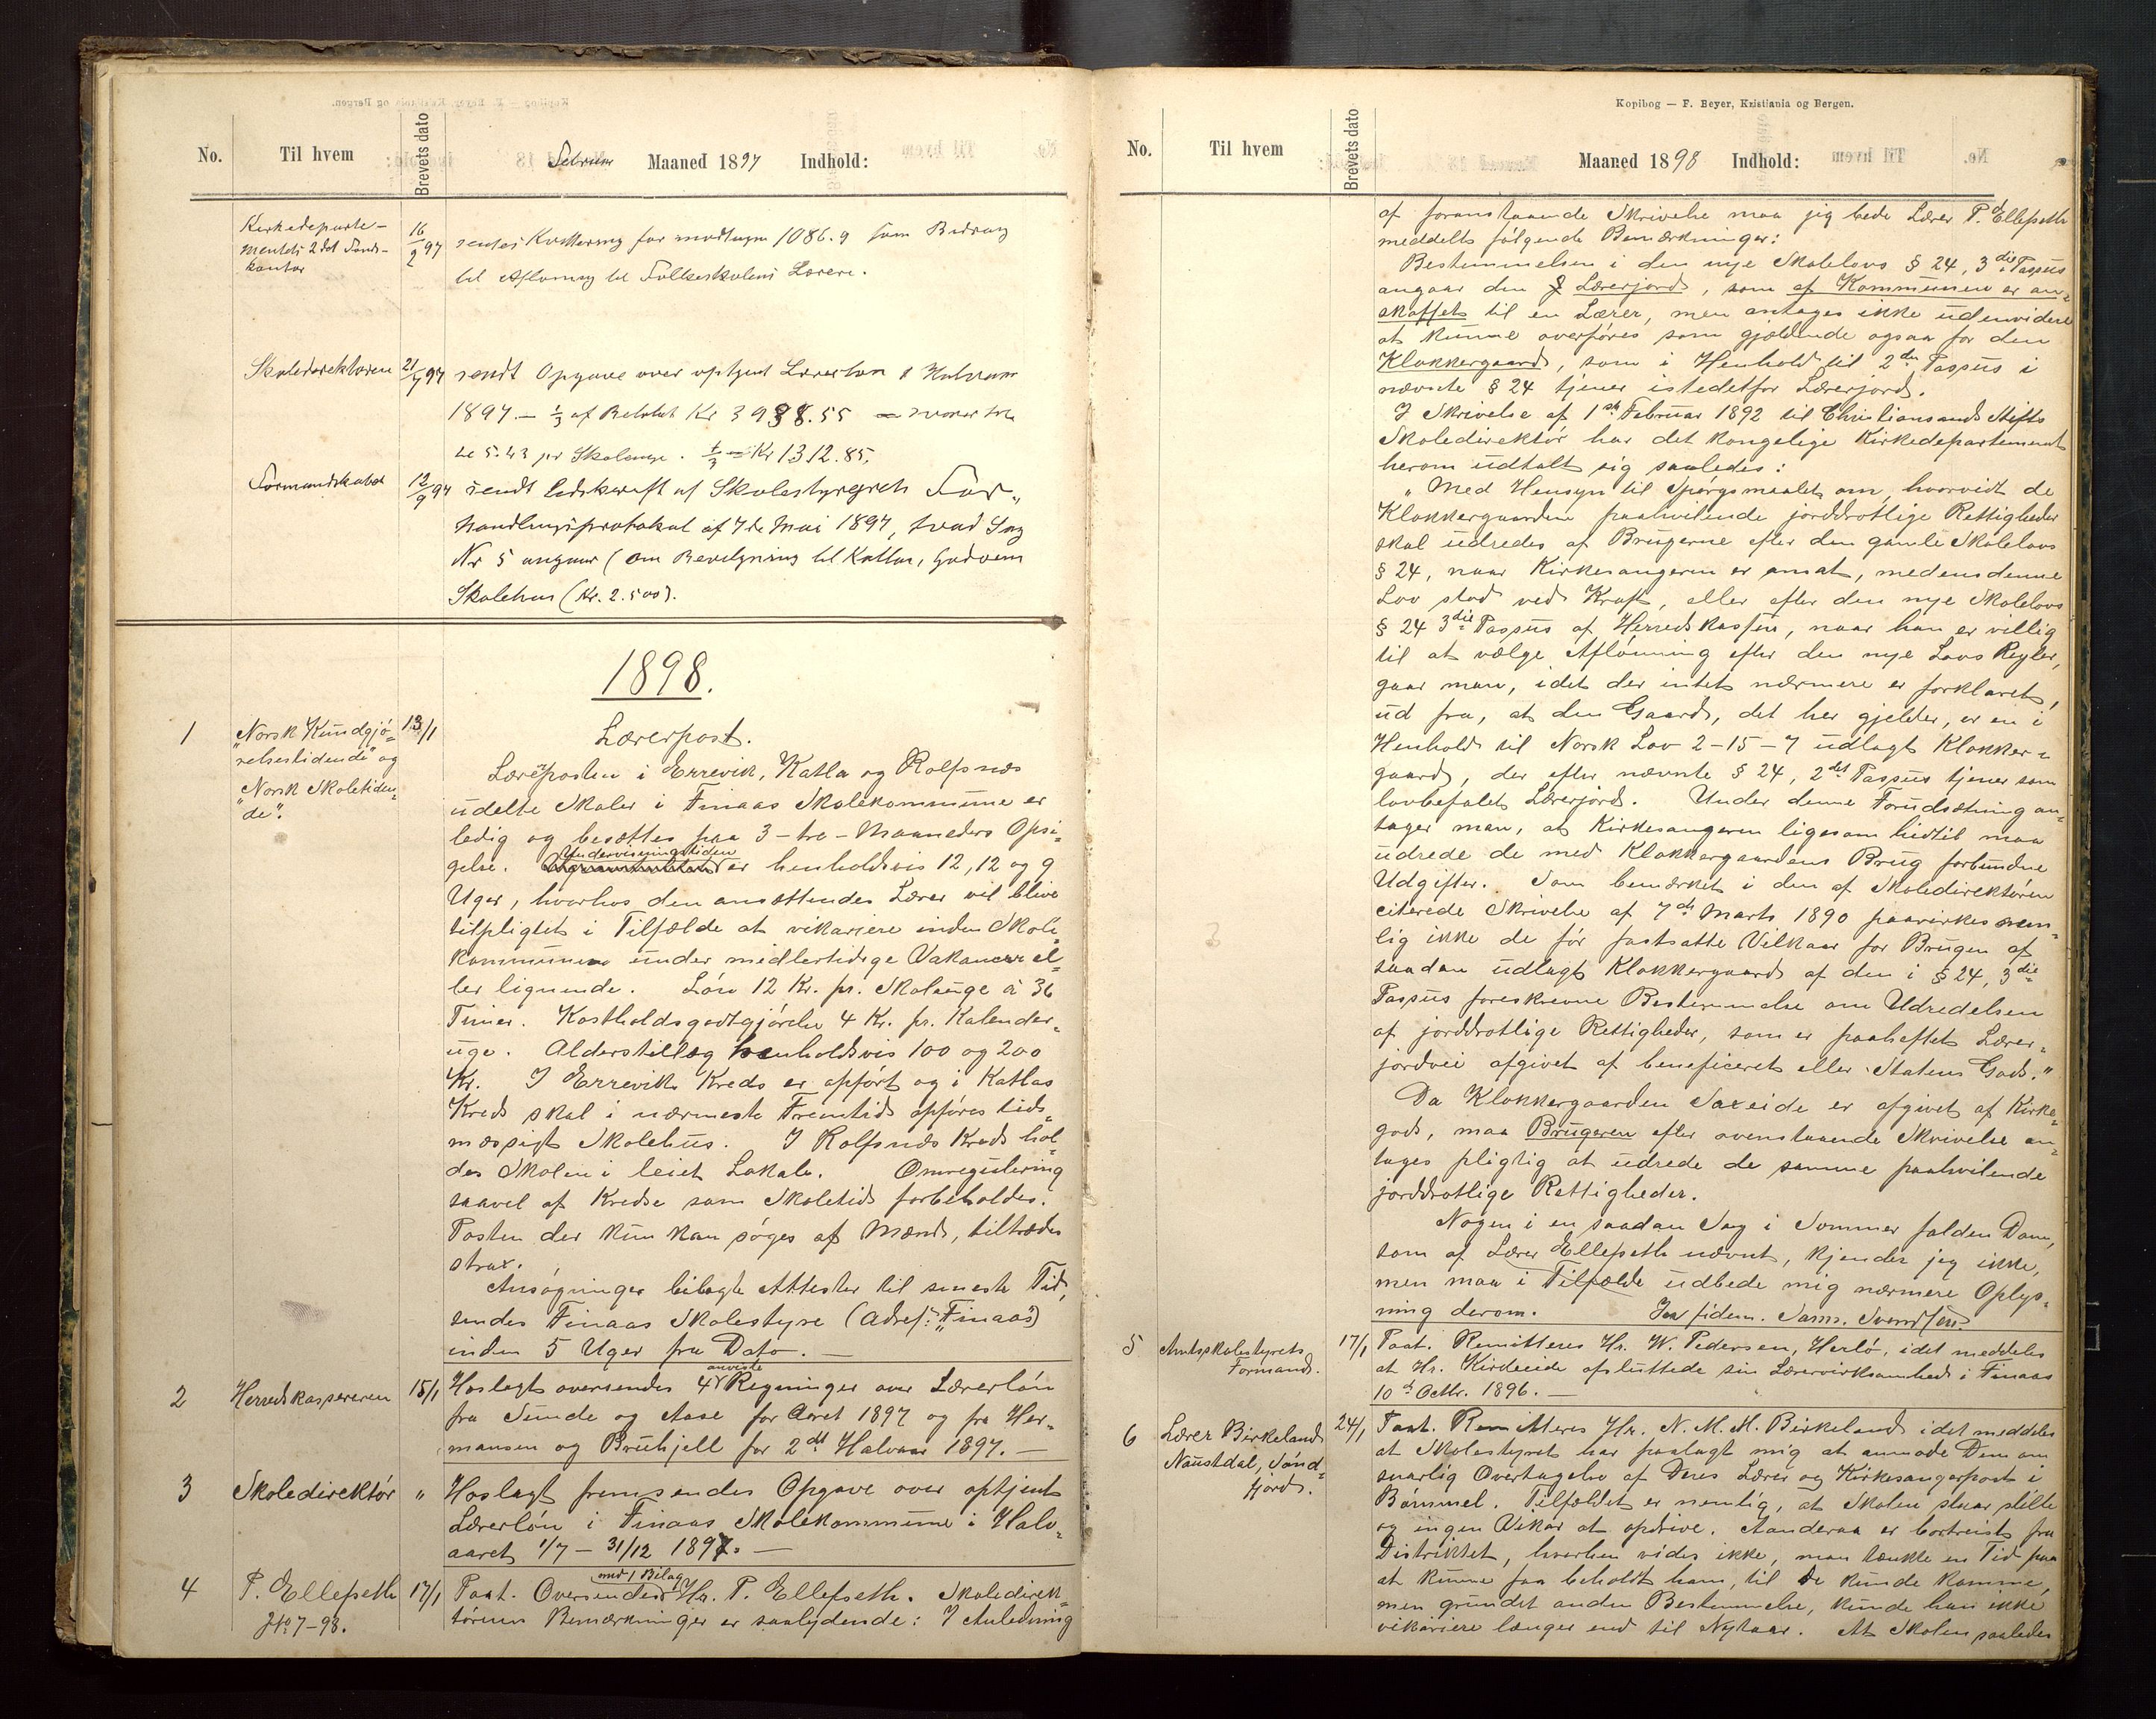 No.
Til hvem
Brevets dato
Maaned 1897
Indhold:
Kirkedeparte-
mentets 2det
kontor
16/2 97
sendes Kvittering for modtagne 1086.9 som Bidrag
til Aflønning til Folkeskolens Lærere.
Skoledirektøren
21/7 97
sendt Opgave over optjent Lærerløn
1897. – 1/3 af Beløbet Kr 3938.55
5.43 pr Skoleuge. 1/3 = Kr 1312.85.
Formandskabet
12/9 97
sendt Udskrift af Skolestyrets For-
handlingsprotokol af 7de Mai 1897, hvad Sag
Nr 5 angaar (om Bevilgning til Katla,
Skolehus (Kr. 2.500).
1898.
1
"Norsk Kundgjø-
relsestidende" og
"Norsk Skoletiden-
de".
13/1
Lærerpost.
Lærerposten i Errevik, Katla og Rolfsnæs
udelte Skoler i Finaas Skolekommune er
ledig og besættes paa 3-tre-Maaneders Opsi-
Undervisningstiden
gelse. er henholdsvis 12, 12 og 9
Uger, hvorhos den ansættendes Lærer vil blive
tilpligtet i Tilfælde at vikariere inden Skole-
kommunen under midlertidige Vakancer el-
ler lignende. Løn 12 Kr. pr. Skoleuge à 36
Timer. Kostholdsgodtgjørelse 4 Kr. pr. Kalender-
uge. Alderstillæg henholdsvis 100 og 200
Kr. I Errevik Kreds er opført og i Katlas
Kreds skal i nærmeste Fremtid opføres tids-
mæssigt Skolehus. I Rolfsnæs Kreds hol-
des Skolen i leiet Lokale. Omregulering
saavel af Kredse som Skoletid forbeholdes.
Posten der kun kan søges af Mænd, tiltrædes
strax.
Ansøgninger bilagte Attester til seneste Tid,
sendes Finaas Skolestyre (Adres: "Finaas")
inden 5 Uger fra Dato. –
2
Herredskassereren
15/1
anviste
Hoslagt oversendes 4 Regninger over Lærerløn
fra Sunde og Aase for Aaret 1897 og fra Her-
mansen og Bruhjell for 2det Halvaar 1897. –
3
Skoledirektør
"
Hoslagt fremsendes Opgave over optjent
Lærerløn i Finaas Skolekommune i Halv-
aaret 1/7 – 31/12 1897. –
4
P. Ellefseth
J№ 7-98.
17/1
med 1 Bilag
Paat. Oversendes Hr. P. Ellefseth. Skoledirek-
tørens Bemærkninger er saalydende: I Anledning
Kopibog — F. Beyer, Kristiania og Bergen.
No.
Til hvem
Brevets dato
Maaned 1898
Indhold:
af foranstaaende Skrivelse maa jeg bede Lærer P. Ellefseth
meddelt følgende Bemærkninger:
Bestemmelsen i den nye Skolelovs § 24, 3die Passus
angaar den Lærerjord, som af Kommunen er an-
skaffet til en Lærer, men antages ikke udenvidere
at kunne overføres som gjældende ogsaa for den
Klokkergaard, som i Henhold til 2den Passus i
nævnte § 24 tjener istedetfor Lærerjord.
I Skrivelse af 1ste Februar 1892 til Christianssands Stifts
Skoledirektør har det kongelige Kirkedepartement
herom udtalt sig saaledes:
"Med Hensyn til Spørgsmaalet om, hvorvidt de
Klokkergaarden paahvilende jorddrotlige Rettigheder
skal udredes af Brugerne efter den gamle Skolelovs
§ 24, naar Kirkesangeren er ansat, medens denne
Lov stod ved Kraft, eller efter den nye Skolelovs
§ 24 3die Passus af Herredskassen, naar han er villig
til at vælge Aflønning efter den nye Lovs Regler,
gaar man, idet der intet nærmere er forklaret,
ud fra, at den Gaard, det her gjelder, er en i
Henhold til Norsk Lov 2-15-7 udlagt Klokker-
gaard, der efter nævnte § 24, 2det Passus tjener som
lovbefalet Lærerjord. Under denne Forudsætning an-
tager man, at Kirkesangeren ligesom hidtil maa
udrede de med Klokkergaardens Brug forbundne
Udgifter. Som bemærket i den af Skoledirektøren
citerede Skrivelse af 7de Marts 1890 paavirkes nem-
lig ikke de før fastsatte Vilkaar for Brugen af
saadan udlagt Klokkergaard af den i § 24, 3die
Passus foreskrevne Bestemmelse om Udredelsen
af jorddrotlige Rettigheder, som er paaheftet Lærer-
jordvei afgivet af beneficeret eller Statens Gods."
Da Klokkergaarden Saxeide er afgivet af Kirke-
gods, maa Brugeren efter ovenstaaende Skrivelse an-
tages pligtig at udrede de samme paahvilende
jorddrotlige Rettigheder.
Nogen i en saadan Sag i Sommer falden Dom,
som af Lærer Ellefseth nævnt, kjender jeg ikke,
men maa i Tilfælde udbede mig nærmere Oplys-
ning derom. In fidem. Sam. Svendsen.
5
Amtsskolestyrets
Formand.
17/1
Paat. Remitteres Hr. W. Pedersen, Herlø, idet meddeles
at Hr. Kirdeeide afsluttede sin Lærervirksomhed i Finaas
10de Octbr. 1896. –
6
Lærer Birkeland
Naustdal, Sønd-
fjord.
24/1
Paat. Remitteres Hr. N. M. M. Birkeland idet meddeles
at Skolestyret har paalagt mig at anmode Dem om
snarlig Overtagelse af Deres Lærer og Kirkesangerpost i
Bømmel. Tilfældet er nemlig, at Skolen staar stille
og ingen Vikar at opdrive. Aanderaa er bortreist fra
Distriktet, hvorhen vides ikke, man tænkte en Tid paa
at kunne faa beholdt ham, til De kunde komme,
men grundet anden Bestemmelse, kunde han ikke
vikariere længer end til Nytaar. At Skolen saaledes